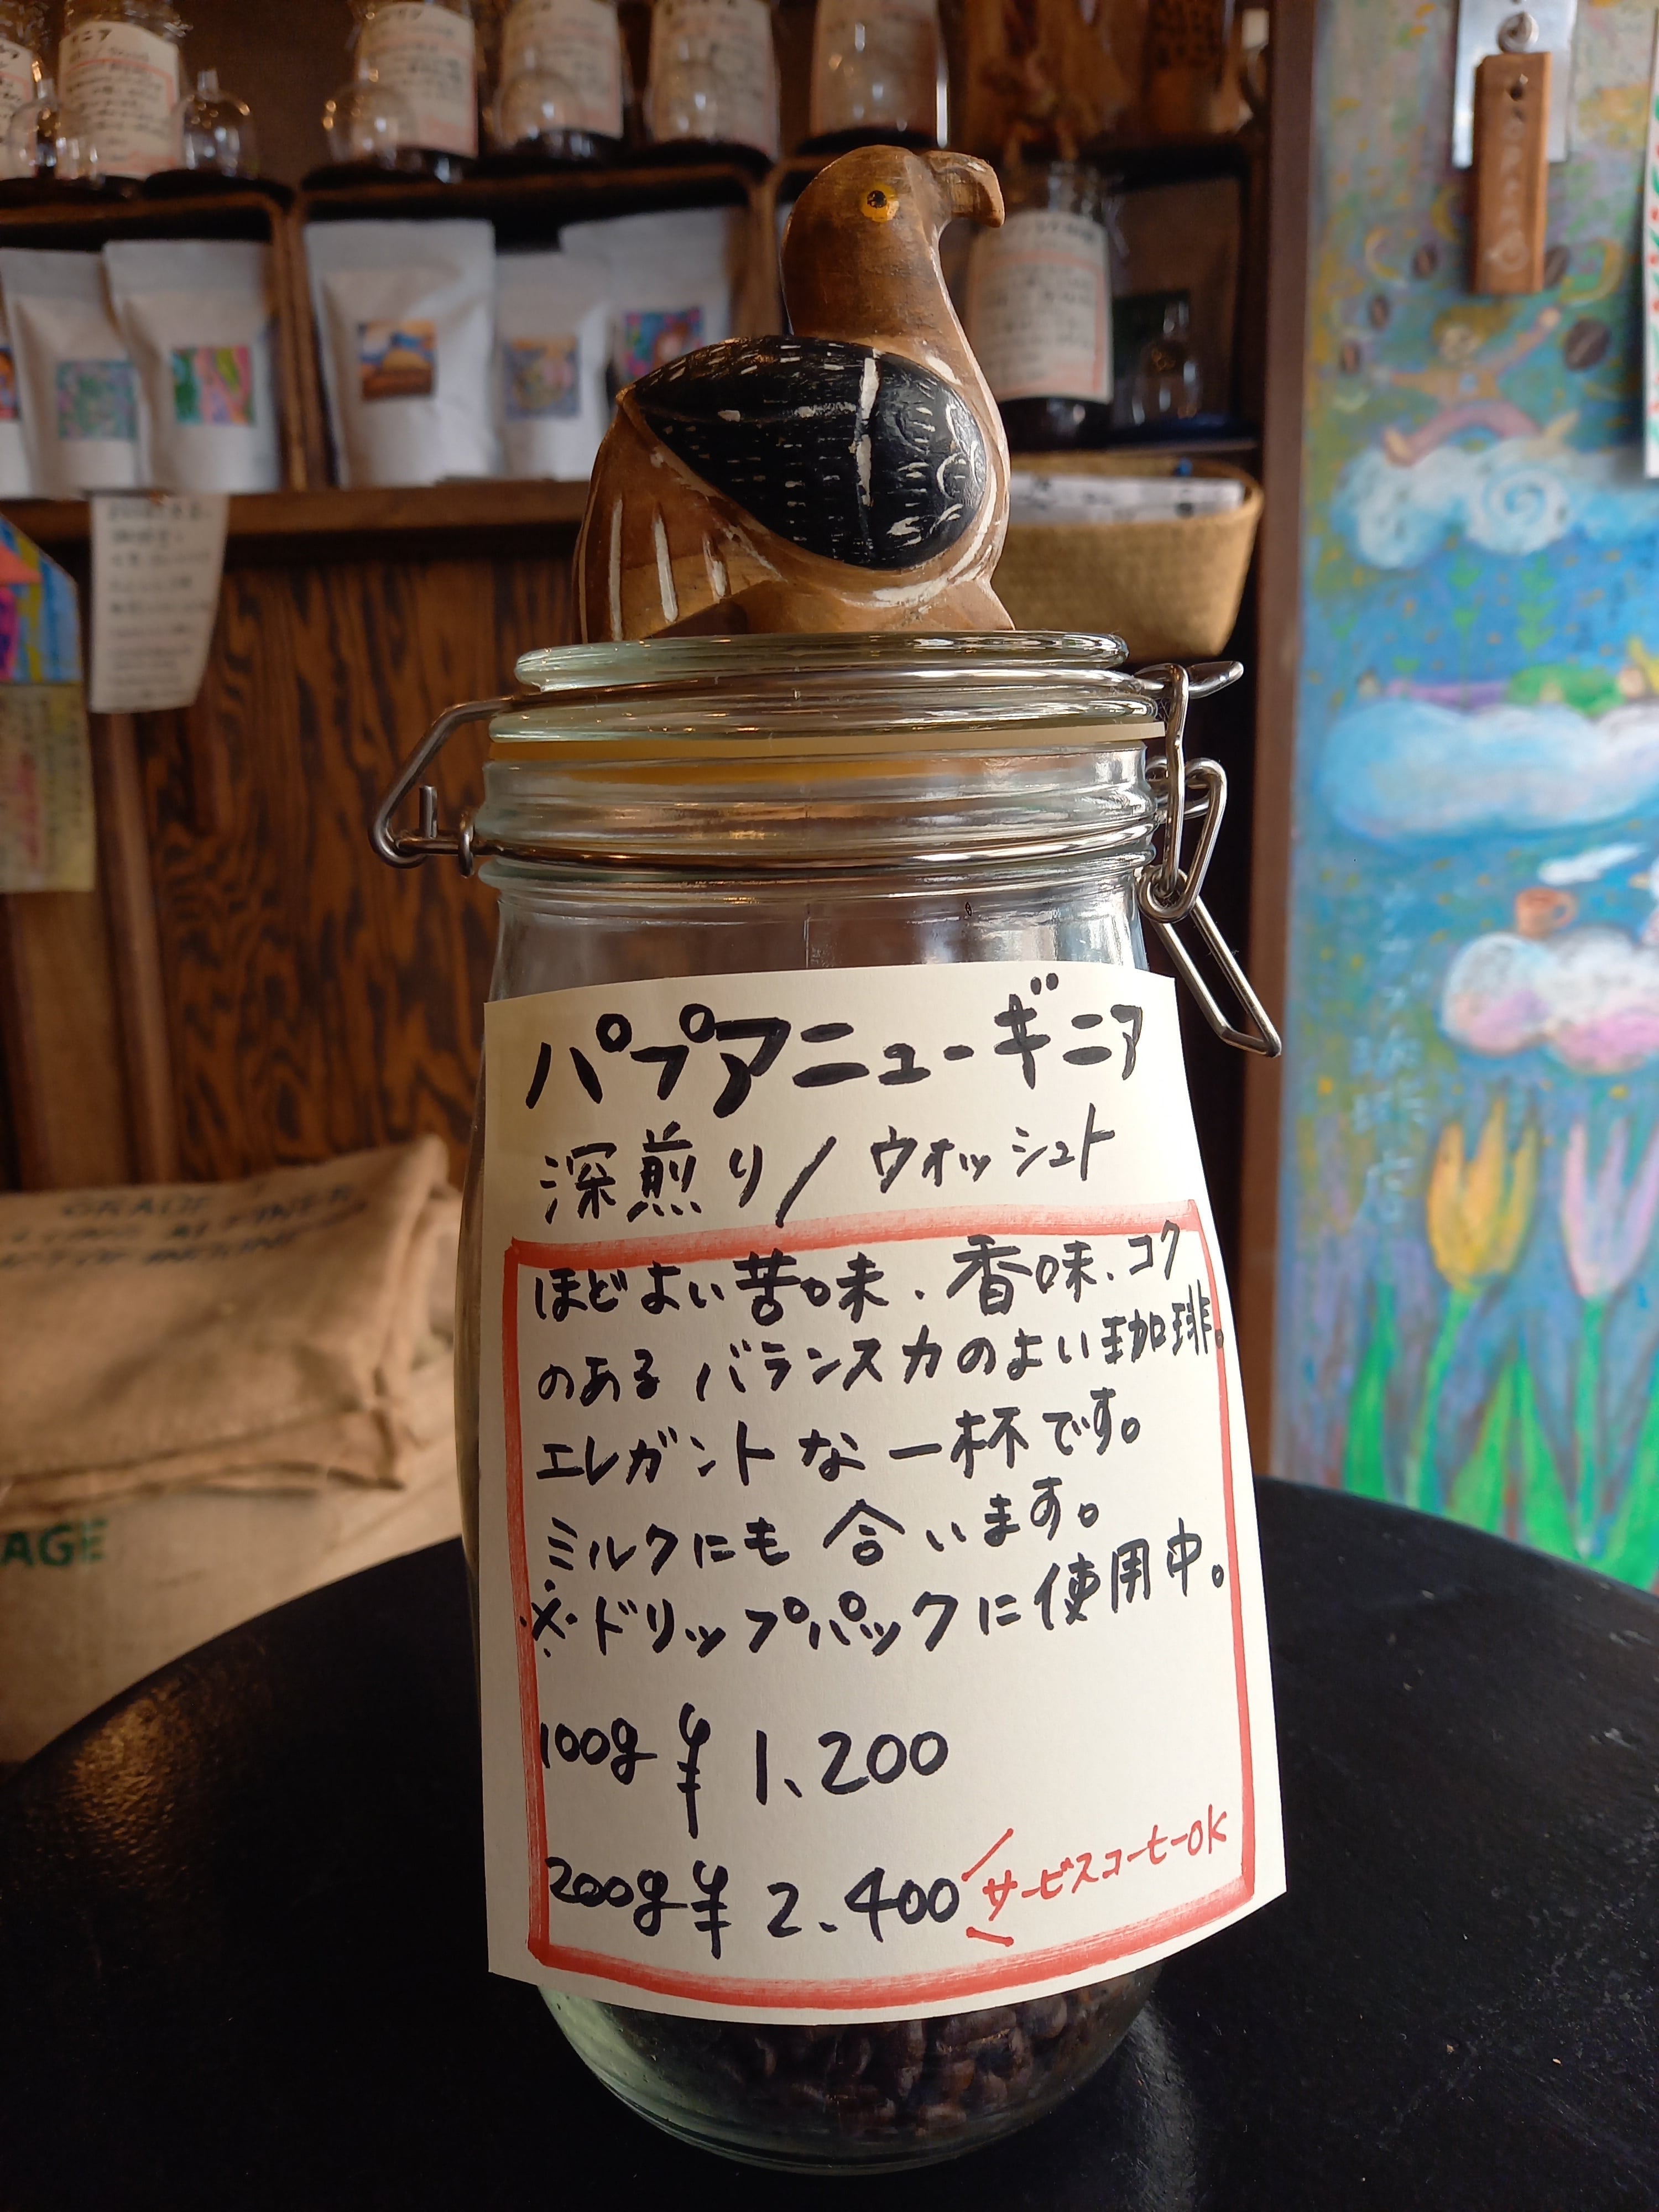 パプアニューギニア
深煎り/ウォッシュト
ほどよい苦味、香味、コク
のあるバランス力のよい珈琲。
エレガントな一杯です。
ミルクにも合います。
※ドリップパックに使用中。
100g ¥ 1,200
200g ¥ 2.400 サービスコーヒーOK
OPEN
AGE